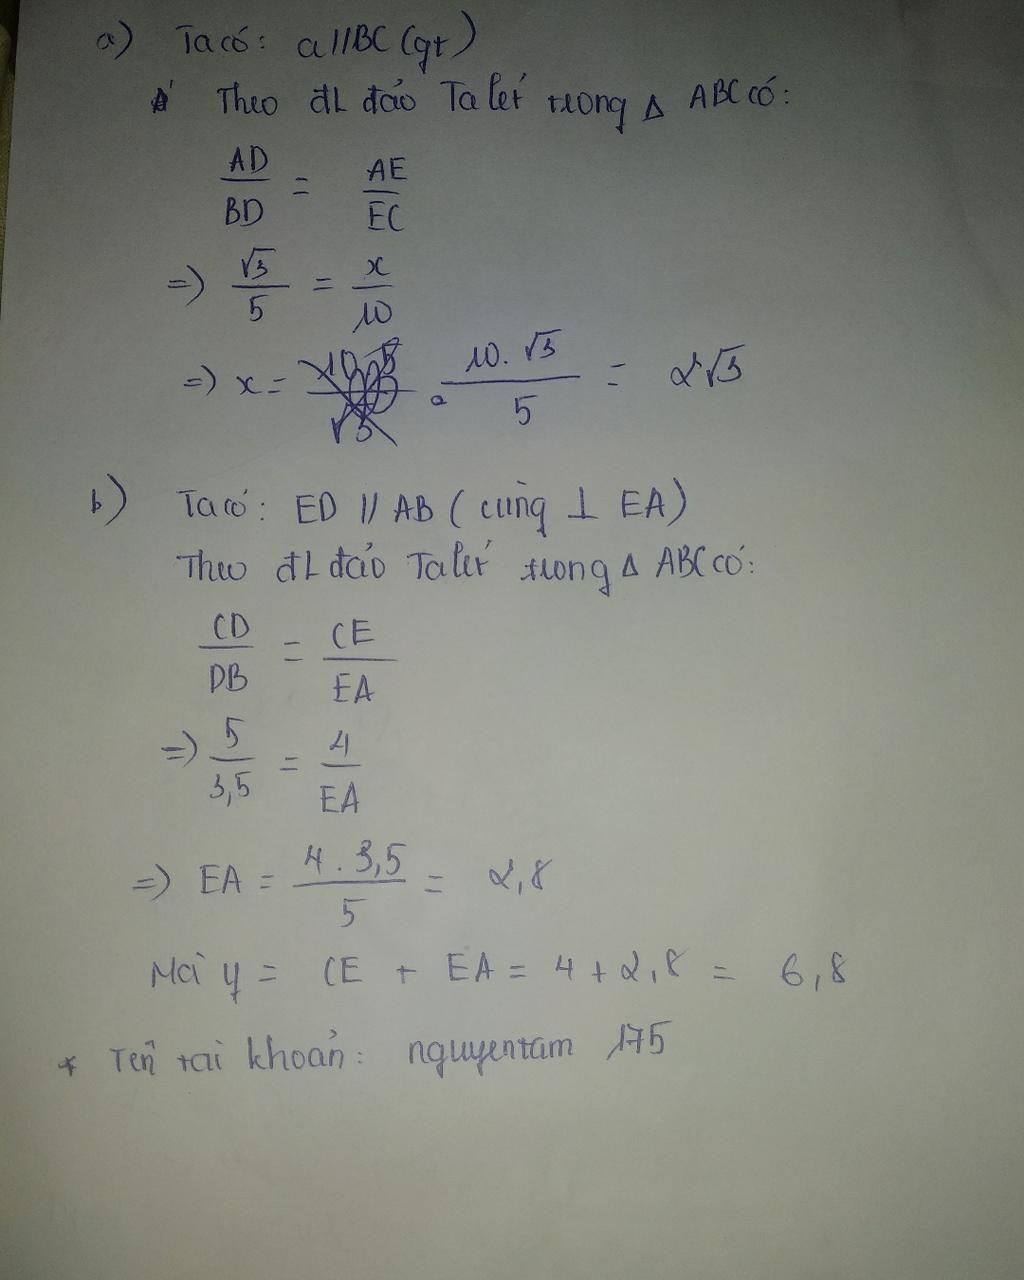 a) Ta có: a//BC (gt)
Theo đL đảo Ta lét trong Δ ABC có:
AD/BD = AE/EC
=> √3/5 = x/10
=> x = 10.√3/5 = 2√3
b) Ta có: ED // AB ( cùng ⊥ EA)
Theo đL đảo Ta lét trong Δ ABC có:
CD/DB = CE/EA
=> 5/3,5 = 4/EA
=> EA = 4.3,5/5 = 2,8
Mà y = CE + EA = 4 + 2,8 = 6,8
* Tên tài khoản: nguyentam 175